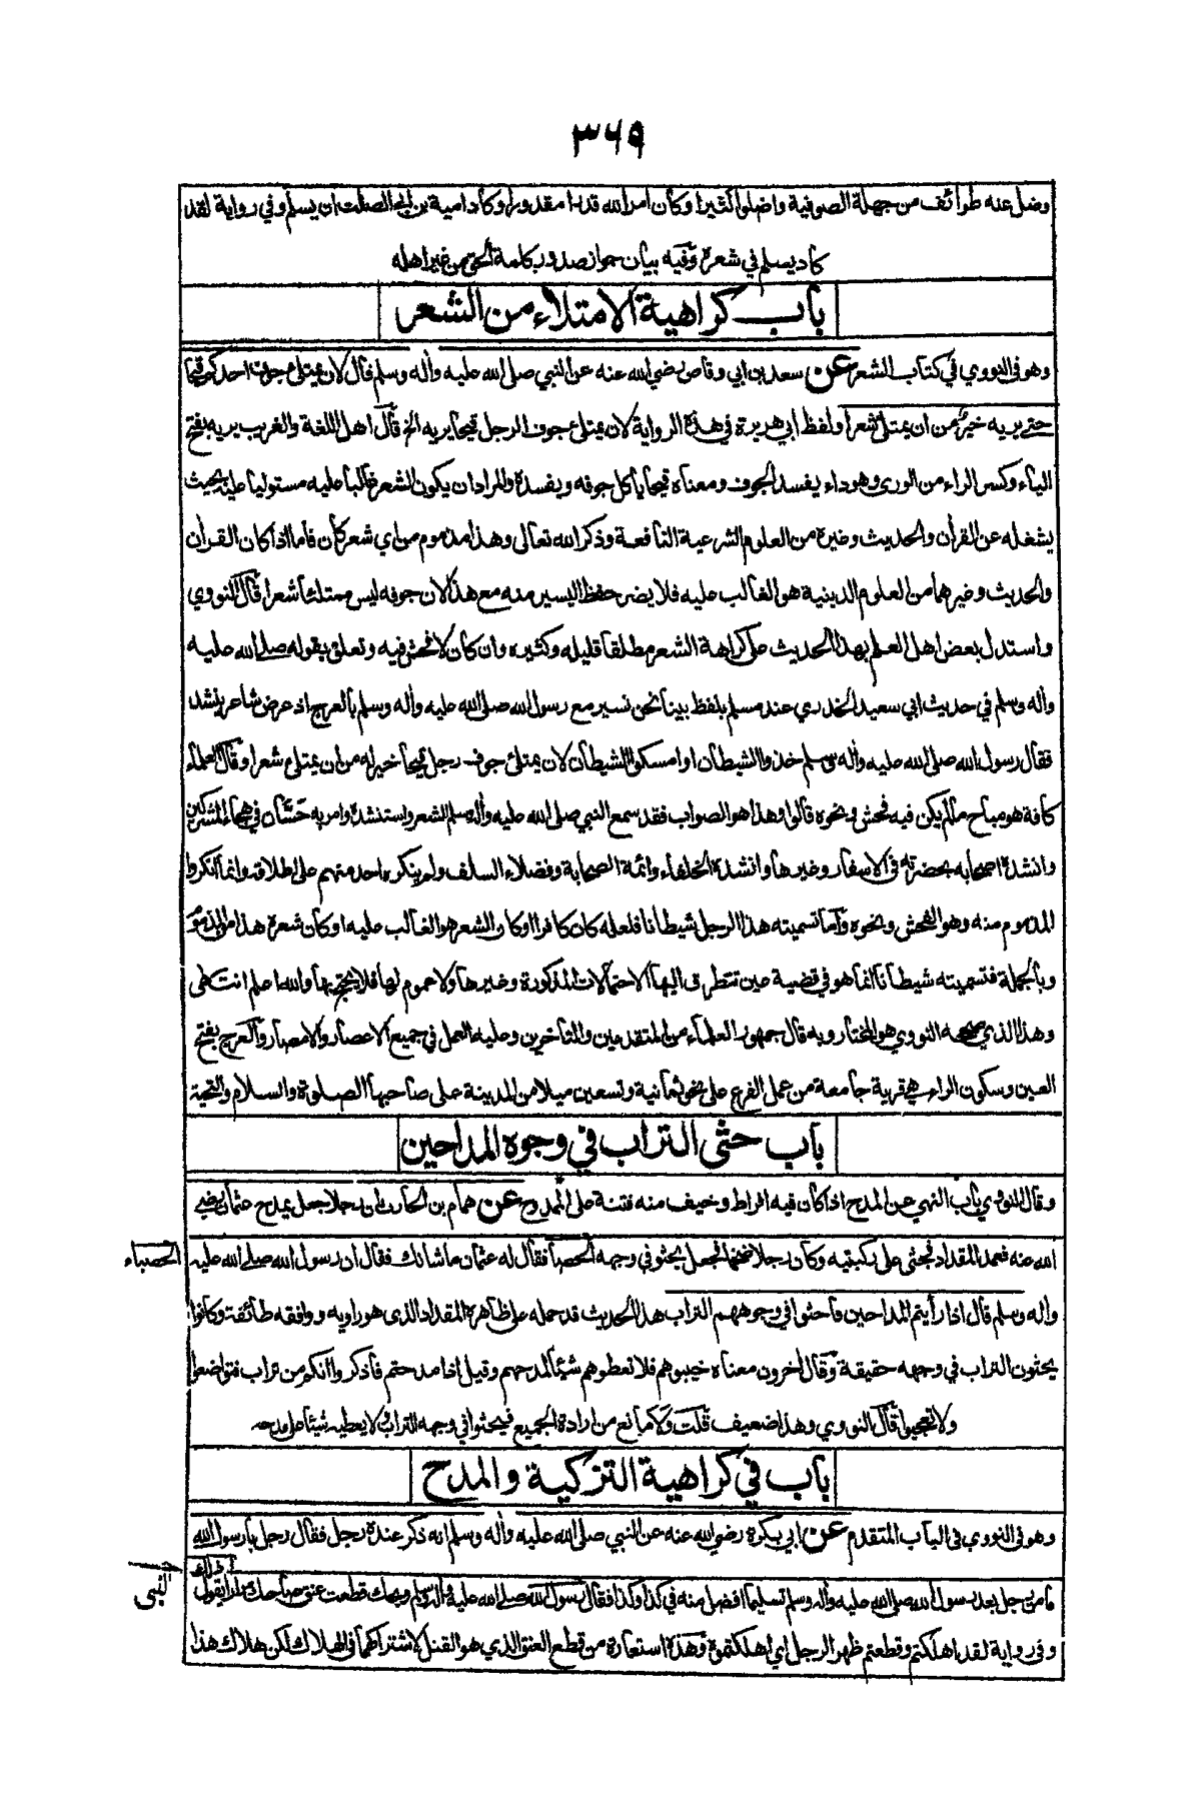 ٣٦٩
وضل عنه طرائف من جهلة الصوفية واضلوا كثيرا وكان امر الله قدرا مقدورا وكاد امية بن ابي الصلت ان يسلم وفي رواية لقد
كاد يسلم في شعره وفيه بيان جواز صدور كلمة الحق من غير اهله
باب كراهية الامتلاء من الشعر
وهو في النووي في كتاب الشعر عن سعد بن ابي وقاص رضي الله عنه عن النبي صلى الله عليه وأله وسلم قال لان يمتلئ جوف احدكم قيحا
حتى يريه خير من ان يمتلئ شعرا ولفظ ابي هريرة في هذه الرواية لان يمتلئ جوف الرجل قيحا يريه الخ قال اهل اللغة والغريب يريه بفتح
الياء وكسر الراء من الوري وهو داء يفسد الجوف ومعناه قيحا يأكل جوفه ويفسده والمراد ان يكون الشعر غالبا عليه مستوليا عليه بحيث
يشغله عن القرأن والحديث وغيره من العلوم الشرعية النافعة وذكر الله تعالى وهذا مذموم من اي شعر كان فاما اذا كان القرأن
والحديث وغيرهما من العلوم الدينية هو الغالب عليه فلا يضر حفظ اليسير منه مع هذا لان جوفه ليس ممتلئا شعرا قال النووي
واستدل بعض اهل العلم بهذا الحديث على كراهة الشعر مطلقا قليله وكثيره وان كان لا فحش فيه وتعلق بقوله صلى الله عليه
وأله وسلم في حديث ابي سعيد الخدري عند مسلم بلفظ بينا نحن نسير مع رسول الله صلى الله عليه وأله وسلم بالعرج اذ عرض شاعر ينشد
فقال رسول الله صلى الله عليه وأله وسلم خذوا الشيطان او امسكوا الشيطان لان يمتلئ جوف رجل قيحا خير له من ان يمتلئ شعرا وقال العلماء
كافة هو مباح مالم يكن فيه فحش ونحوه قالوا وهذا هو الصواب فقد سمع النبي صلى الله عليه وأله وسلم الشعر واستنشده وامر به حسّان في هجاء المشركين
وانشده اصحابه بحضرته في الاسفار وغيرها وانشده الخلفاء وائمة الصحابة وفضلاء السلف ولم ينكره احد منهم على اطلاقه وانما انكروا
المذموم منه وهو الفحش ونحوه واما تسميته هذا الرجل شيطانا فلعله كان كافرا او كان الشعر هو الغالب عليه او كان شعره هذا من المذموم
وبالجملة فتسميته شيطانا انما هو في قضية عين تتطرق اليها الاحتمالات المذكورة وغيرها ولا عموم لها فلا يحتج بها والله اعلم انتهى
وهذا الذي صححه النووي هو المختار وبه قال جمهور العلماء من المتقدمين والمتأخرين وعليه العمل في جميع الاعصار والامصار والعرج بفتح
العين وسكون الراء هي قرية جامعة من عمل الفرع على نحو ثمانية وتسعين ميلا من المدينة على صاحبها الصلوة والسلام والتحية
باب حثى التراب في وجوه المداحين
وقال النووي باب النهي عن المدح اذا كان فيه افراط وخيف منه فتنة على الممدوح عن همام بن الحارث ان رجلا جعل يمدح عثمان رضي
الله عنه فعمد المقداد فجثى على ركبتيه وكان رجلا ضخما فجعل يحثو في وجهه الحصبا فقال له عثمان ما شانك فقال ان رسول الله صلى الله عليه
الحصباء
وأله وسلم قال اذا رأيتم المداحين فاحثوا في وجوههم التراب هذا الحديث قد حمله على ظاهره المقداد الذي هو راويه ووافقه طائفة وكانوا
يحثون التراب في وجهه حقيقة وقال أخرون معناه خيبوهم فلا تعطوهم شيئا لمدحهم وقيل اذا مدحتم فاذكروا انكم من تراب فتواضعوا
ولا تعجبوا قال النووي وهذا ضعيف قلت ولا مانع من ارادة الجميع فيحثوا في وجهه التراب ولا يعطيه شيئا على مدحه
باب في كراهية التزكية والمدح
وهو في النووي في الباب المتقدم عن ابي بكرة رضي الله عنه عن النبي صلى الله عليه وأله وسلم انه ذكر عنده رجل فقال رجل يا رسول الله
النبي
ما من رجل بعد رسول الله صلى الله عليه وأله وسلم تسليما افضل منه في كذا وكذا فقال رسول الله صلى الله عليه وأله وسلم ويحك قطعت عنق صاحبك مرارا يقول
وفي رواية لقد اهلكتم وقطعتم ظهر الرجل اي اهلكتموه وهذه استعارة من قطع العنق الذي هو القتل لاشتراكهما في الهلاك لكن هلاك هذا